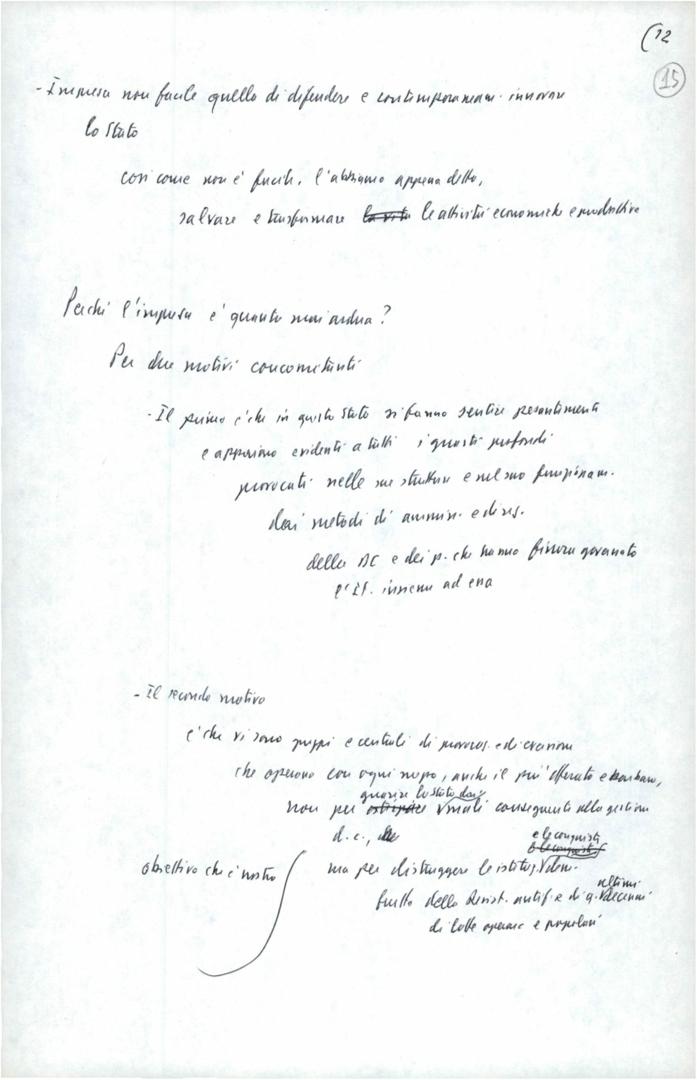 (12
15
- Impresa non facile quella di difendere e contemporaneam. innovare
lo Stato
così come non è facile, l'abbiamo appena detto,
salvare e trasformare la vita le attività economiche e produttive
Perché l'impresa è quanto mai ardua?
Per due motivi concomitanti
- Il primo è che in questo Stato si fanno sentire pesantemente
e appaiono evidenti a tutti i guasti profondi
provocati nelle sue strutture e nel suo funzionam.
dai metodi di ammin. e direz.
della DC e dei p. che hanno finora governato
l'It. insieme ad essa
- Il secondo motivo
è che vi sono gruppi e centrali di provocaz. ed eversione
che operano con ogni mezzo, anche il più efferato e barbaro,
guarire lo Stato dai
non per mali conseguenti alla gestione
d.c.,
e le conquiste
obiettivo che è nostro
ma per distruggere le istituz.
ultimi
frutto della Resist. antif. e di q. decenni
di lotte operaie e popolari